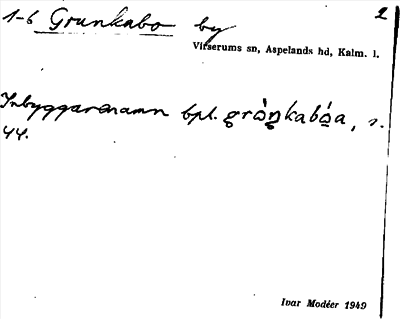 1-6 Grunkabo by 2
Virserums sn, Aspelands hd, Kalm. l.
Inbyggarenamn bpl. gròŋkabóa, s.
44.
Ivar Modéer 1949